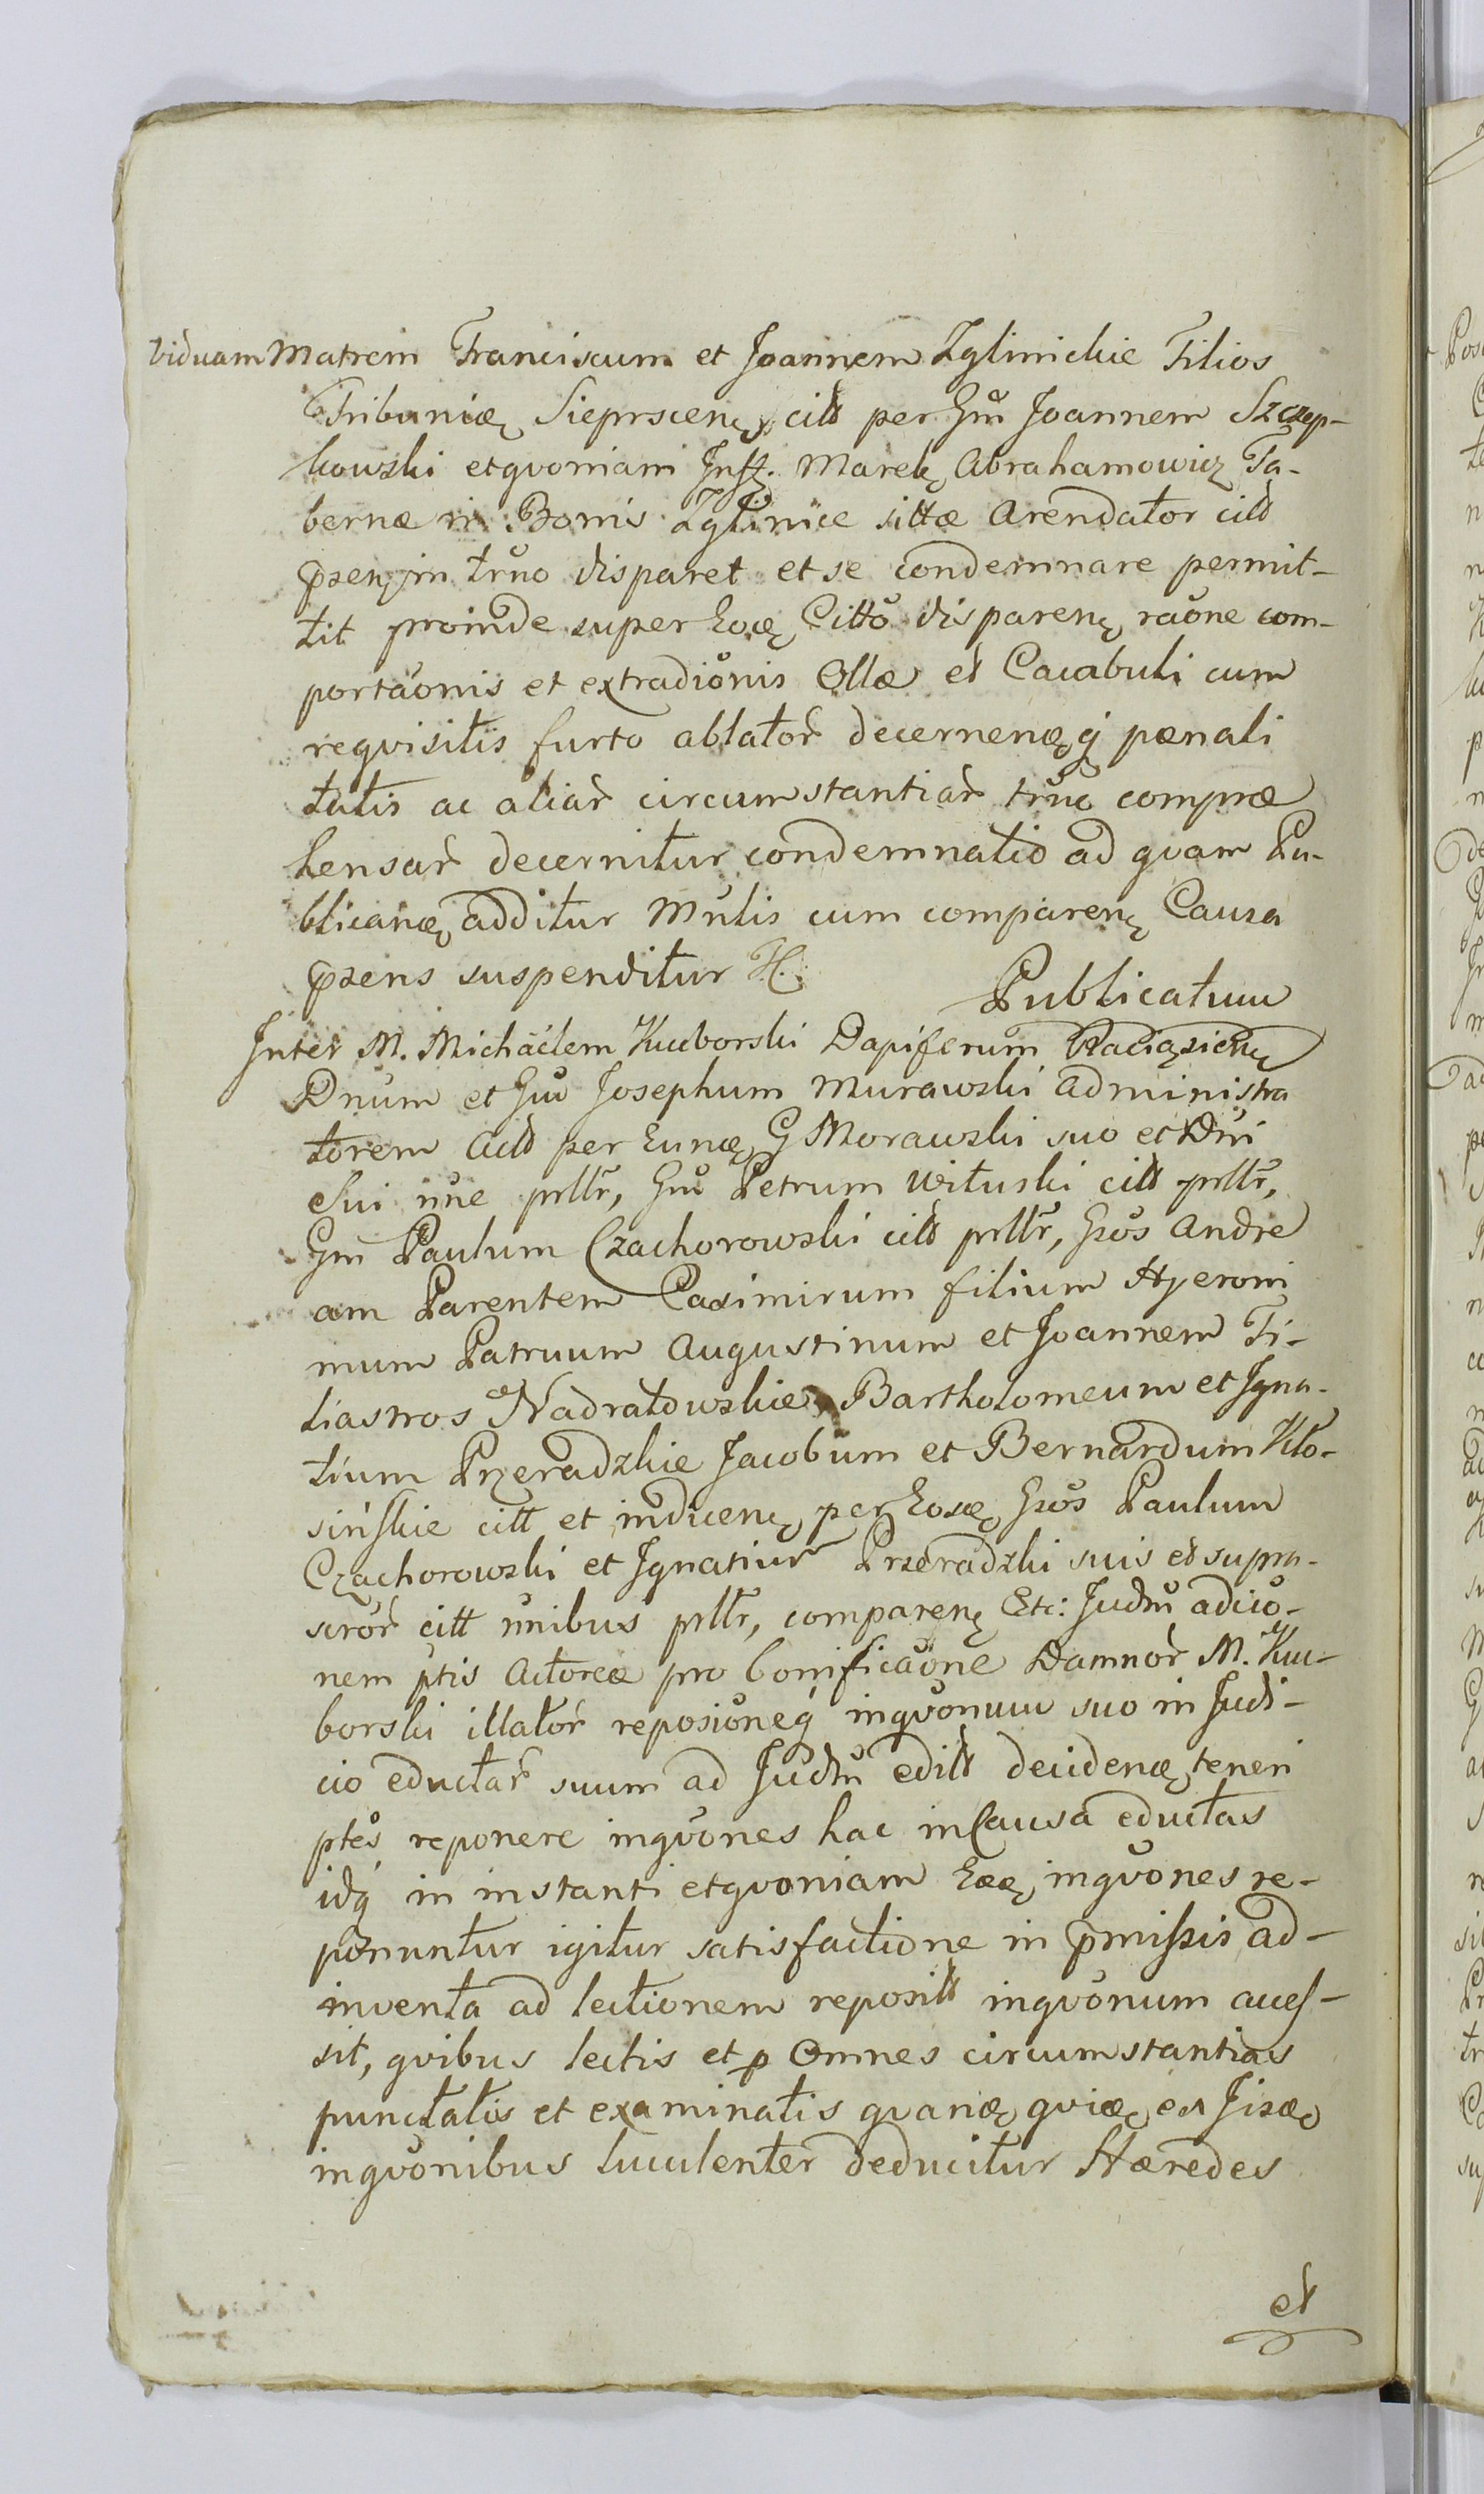 Viduam Matrem Franciscum et Joannem Zglinickie Filios
Tribuniæ Sieprscenę citt per Gm Joannem Szczep-
kowski et qvoniam Inff. Marek Abrahamowicz Ta-
bernæ in Bonis Zglinice sittæ Arendator citt
pzenę in truo disparet et se condemnare permit-
tit proinde super Eoę Citto disparenę raõne com-
portaõnis et extradiõnis Ollæ et Cacabuli cum
reqvisitis furto ablator decernenęq pænali
tatis ac aliar circumstantiar truo compræ
hensar decernitur condemnatio ad qvam Pu-
blicanæ additur Mnlis cum comparenę Causa
pzens suspenditur H.
Publicatum
Inter M. Michaëlem Kucborski Dapiferum Raciązienę
Dnum et Gm Josephum Murawski Administra
torem Actt per Eunę G Morawski suo et Dni
Sui nne prllr, Gm Petrum Wituski citt prllr,
Gm Paulum Czachorowski citt prllr, Gsos Andre
am Parentem Casimirum filium Hyeroni
mum Patruum Augustinum et Joannem Fi-
liastros Nadratowskie Bartholomeum et Igna-
tium Przeradzkie Jacobum et Bernardum Kło-
sińskie citt et indicenę per Eosę Gsos Paulum
Czachorowski et Ignatium Przeradzki suis et supra-
scror citt nnibus prllr, comparenę Etc: Judm adcio-
nem ptis Actoreæ pro bonificaõne Damnor M. Kuc-
borski illator reposiõneq inqvonum suo in Judi-
cio eductar suum ad Judm editt decidenę teneri
ptes reponere inqvones hac in Causa eductas
idq in instanti et qvoniam Eæę inqvones re-
ponuntur igitur satisfactione in pmissis ad-
inventa ad lectionem repositt inqvonum acces-
sit, qvibus lectis et p Omnes circumstantias
punctatis et examinatis qvanę qviæ ex Iisdę
inqvonibus luculenter deducitur Hæredes
et